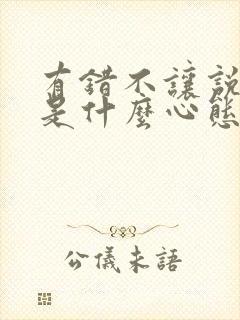 有錯不讓説
是什麼心態
公儀未語